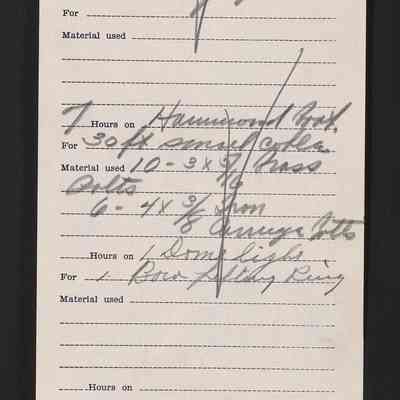 For
Material used
7 Hours on Hammond Boat.
For 30 ft sunset
Material used 10 - 3 x 5/16 Brass
Bolts
6 - 4 x 3/8 Iron
Carriage Bolts
Hours on 1 Dome light
For 1 Bow Ring
Material used
Hours on